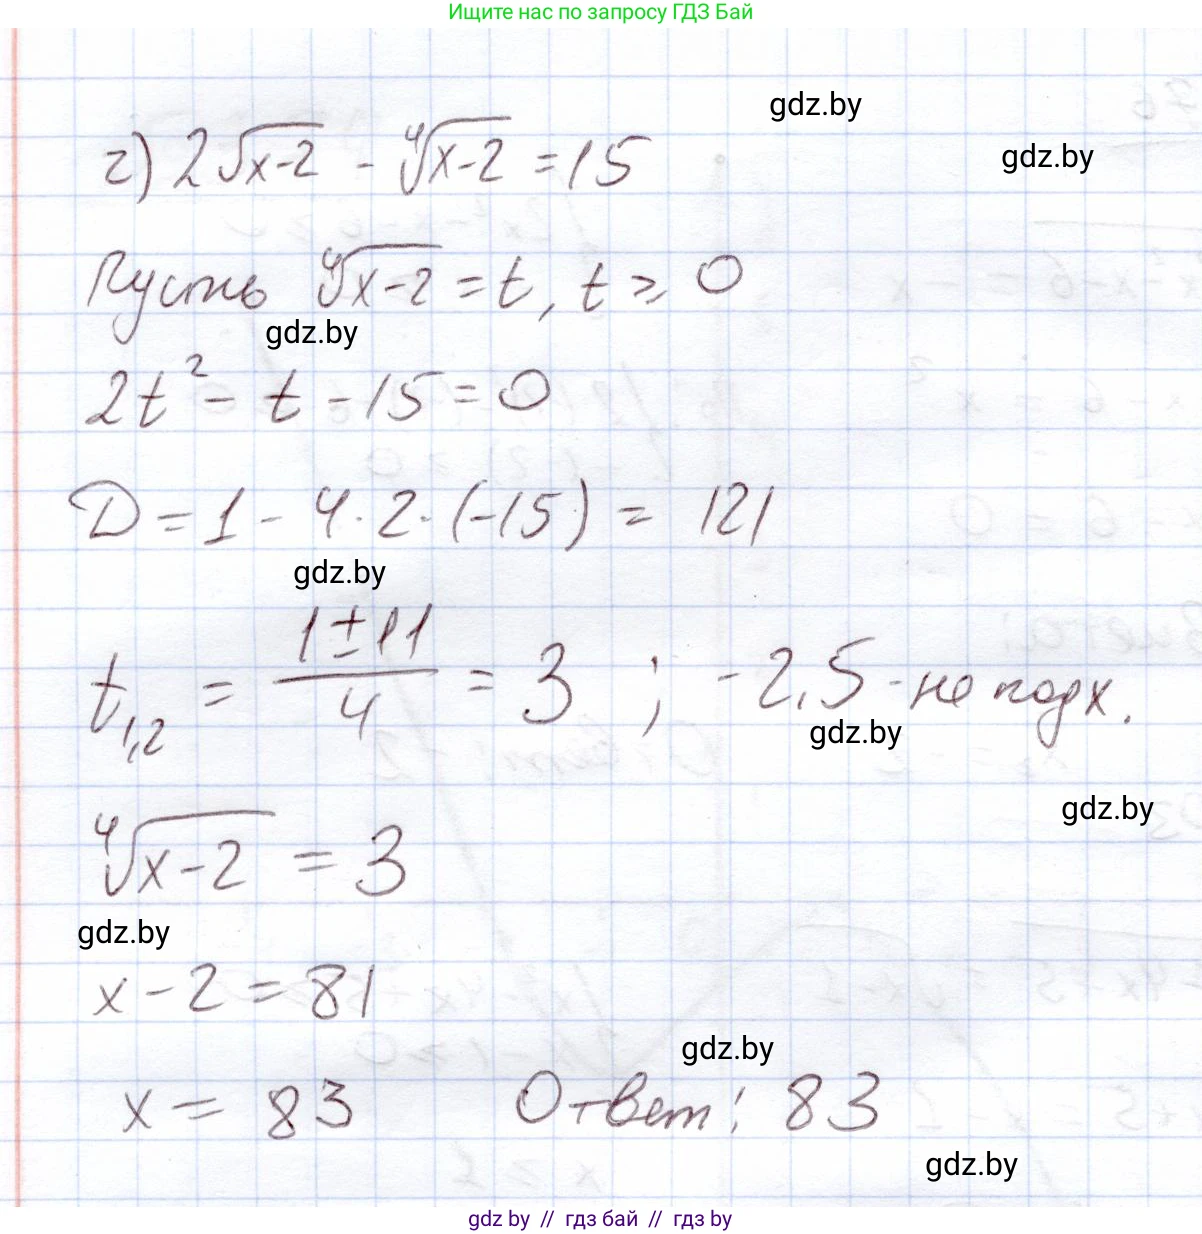 Ищите нас по запросу ГДЗ Бай
gdz.by
gdz.by
г) 2√(x-2) - ⁴√(x-2) = 15
Пусть ⁴√(x-2) = t, t ≥ 0
gdz.by
2t² - t - 15 = 0
D = 1 - 4·2·(-15) = 121
gdz.by
t₁,₂ = (1±11)/4 = 3 ; -2,5 - не подх.
gdz.by
gdz.by
⁴√(x-2) = 3
gdz.by
x-2 = 81
gdz.by
x = 83 Ответ: 83
gdz.by
gdz by // гдз бай // гдз by